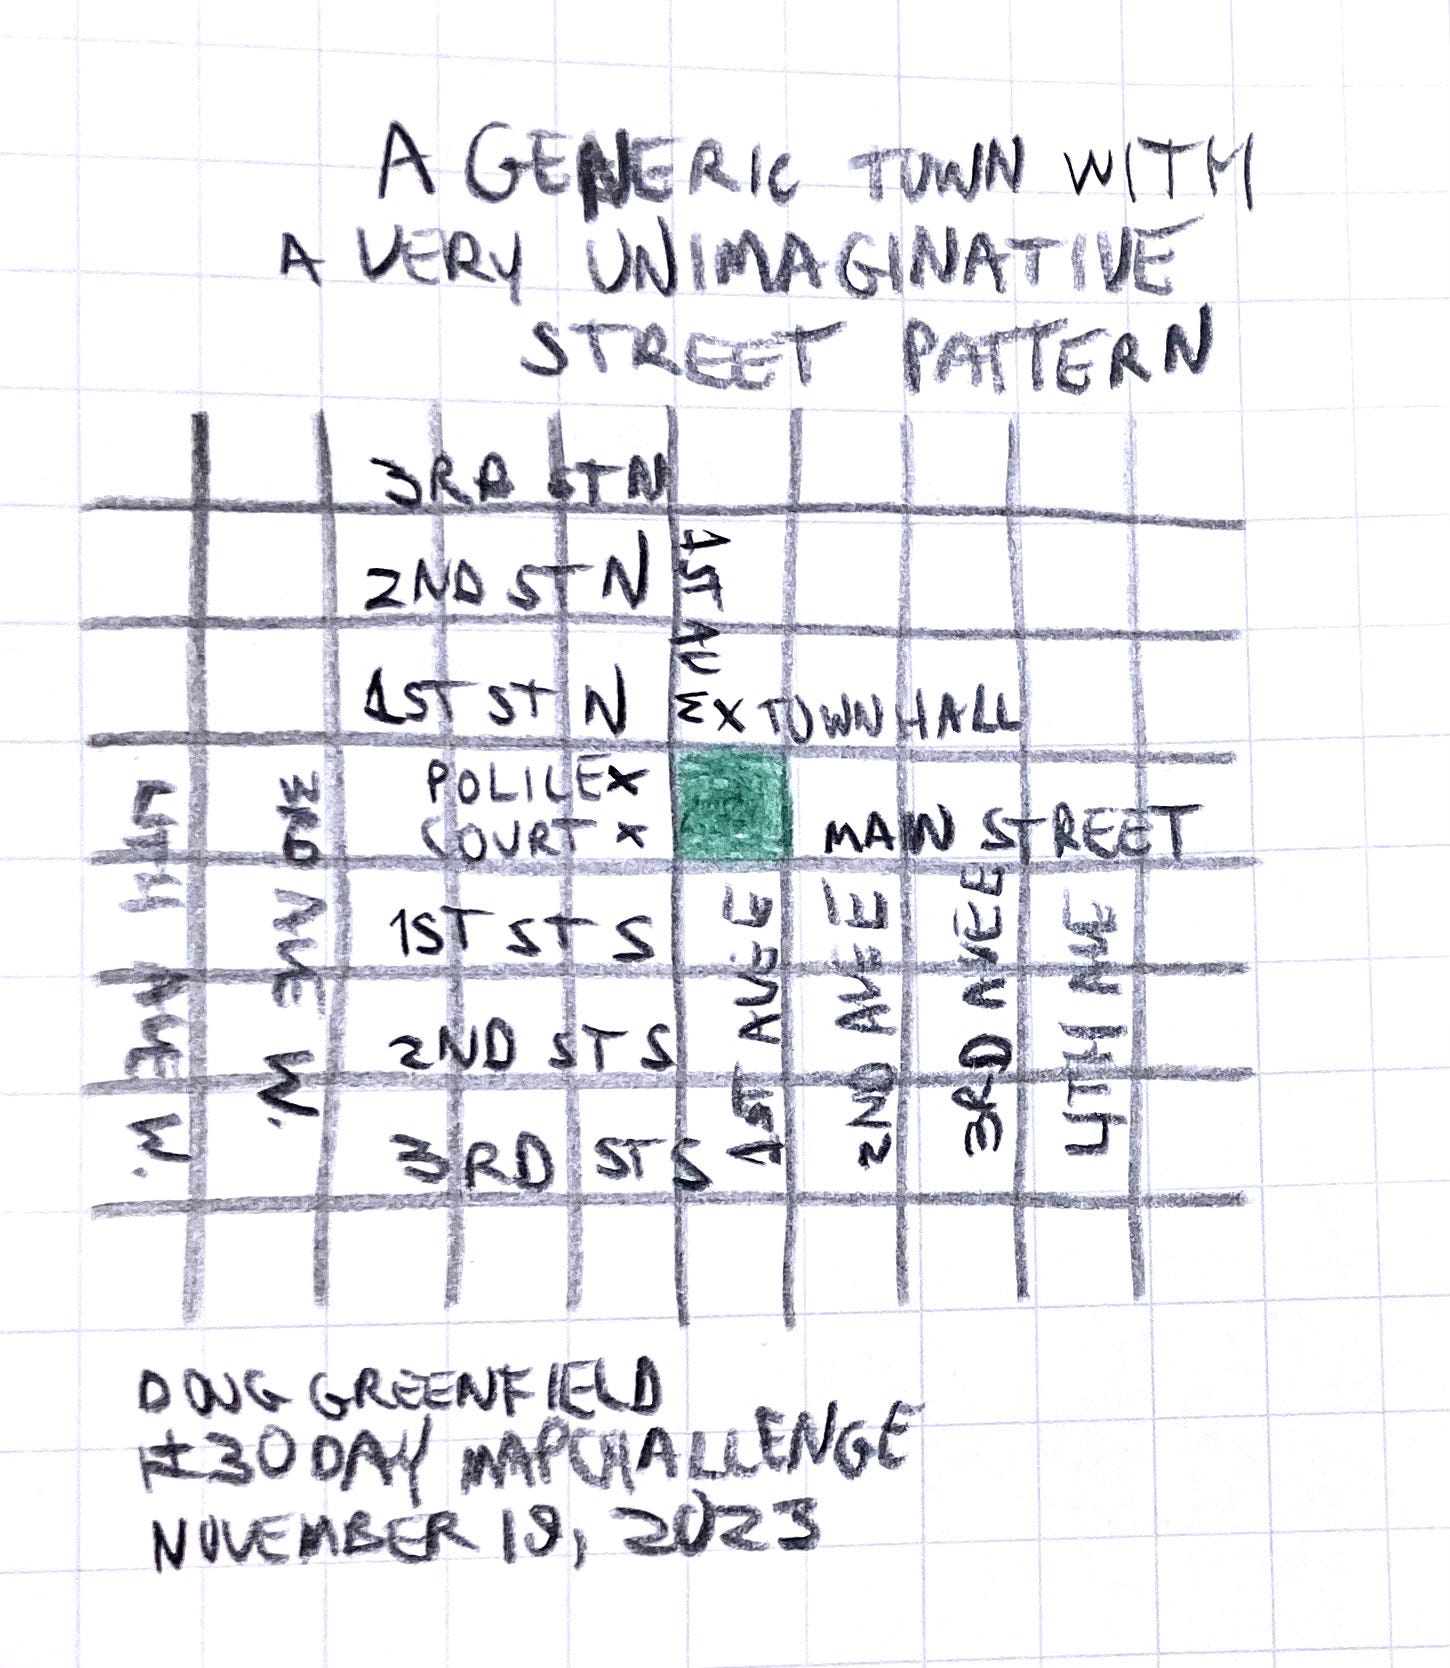 A GENERIC TOWN WITH
A VERY UNIMAGINATIVE
STREET PATTERN
3RD ST N
2ND ST N
1ST AVE
1ST ST N
X TOWN HALL
POLICE X
COURT X
MAIN STREET
4TH AVE W.
3RD AVE W.
1ST ST S
2ND ST S
3RD ST S
1ST AVE E
2ND AVE E
3RD AVE E
4TH AVE
DOUG GREENFIELD
#30DAY MAPCHALLENGE
NOVEMBER 19, 2023